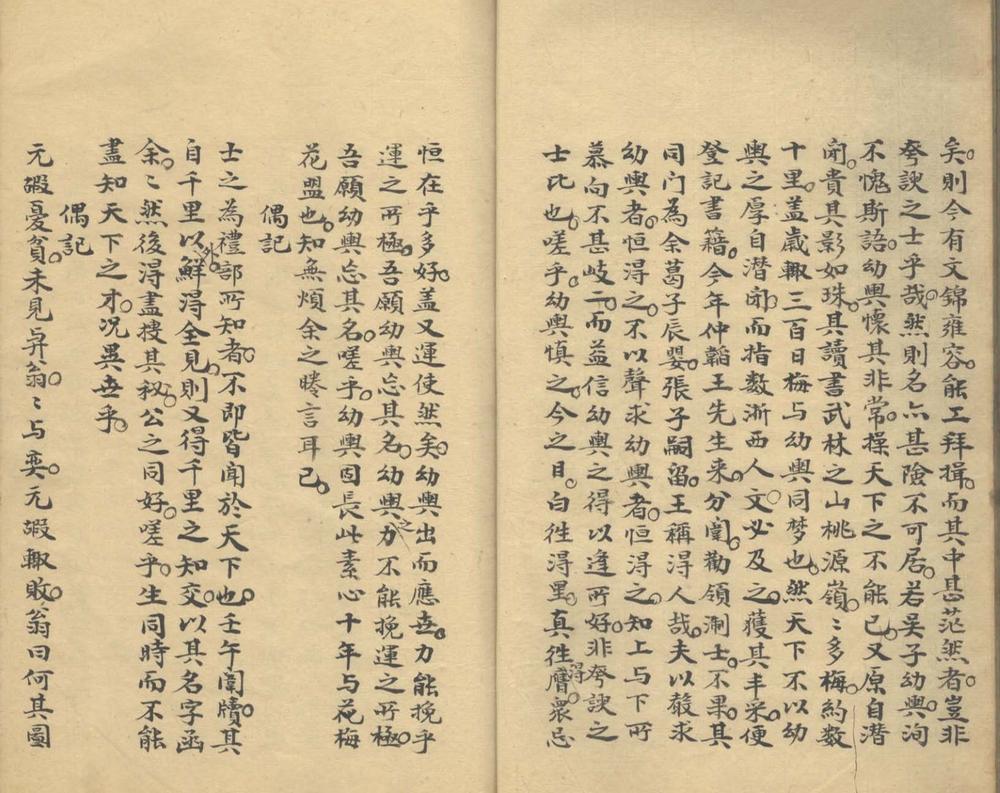 矣則今有文錦雍容能工拜揖而其中甚茫然者豈非
夸諛之士乎哉然則名亦甚險不可居若吳子幼輿洵
不愧斯語幼輿懷其非常操天下之不能已又原自潛
闻貴其影如珠其讀書武林之山桃源嶺〻多梅約数
十里盖歲輙三百日梅与幼輿同梦也然天下不以幼
輿之厚自潜闻而指数浙西人文必及之獲其丰采便
登記書籍今年仲韜王先生来分闈勸領涮士不果其
同门為余葛子辰婴張子嗣留王稱得人哉夫以嚴求
幼輿者恒得之不以聲求幼輿者恒得之知上与下所
慕向不甚岐二而益信幼輿之得以逢所好非夸諛之
士比也嗟乎幼輿慎之今之目白徃得黑真徃得贋衆忌
恒在乎多好盖又運使然矣幼輿出而應世力能挽乎
運之所極吾願幼輿忘其名幼輿之力不能挽運之所極
吾願幼輿忘其名嗟乎幼輿固長此素心十年与花梅
花盟也知無煩余之賸言耳已
偶記
士之為禮部所知者不即皆闻於天下也壬午闈牘其
自千里以外鮮得全見則又得千里之知交以其名字函
余〻然後得盡搜其秘公之同好嗟乎生同時而不能
盡知天下之才况異世乎
偶記
元嘏憂貧未見弈翁〻与奕元嘏輙敗翁曰何其圖